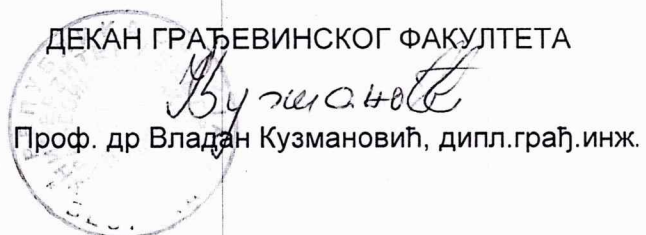 ДЕКАН ГРАЂЕВИНСКОГ ФАКУЛТЕТА
Проф. др Владан Кузмановић, дипл.грађ.инж.